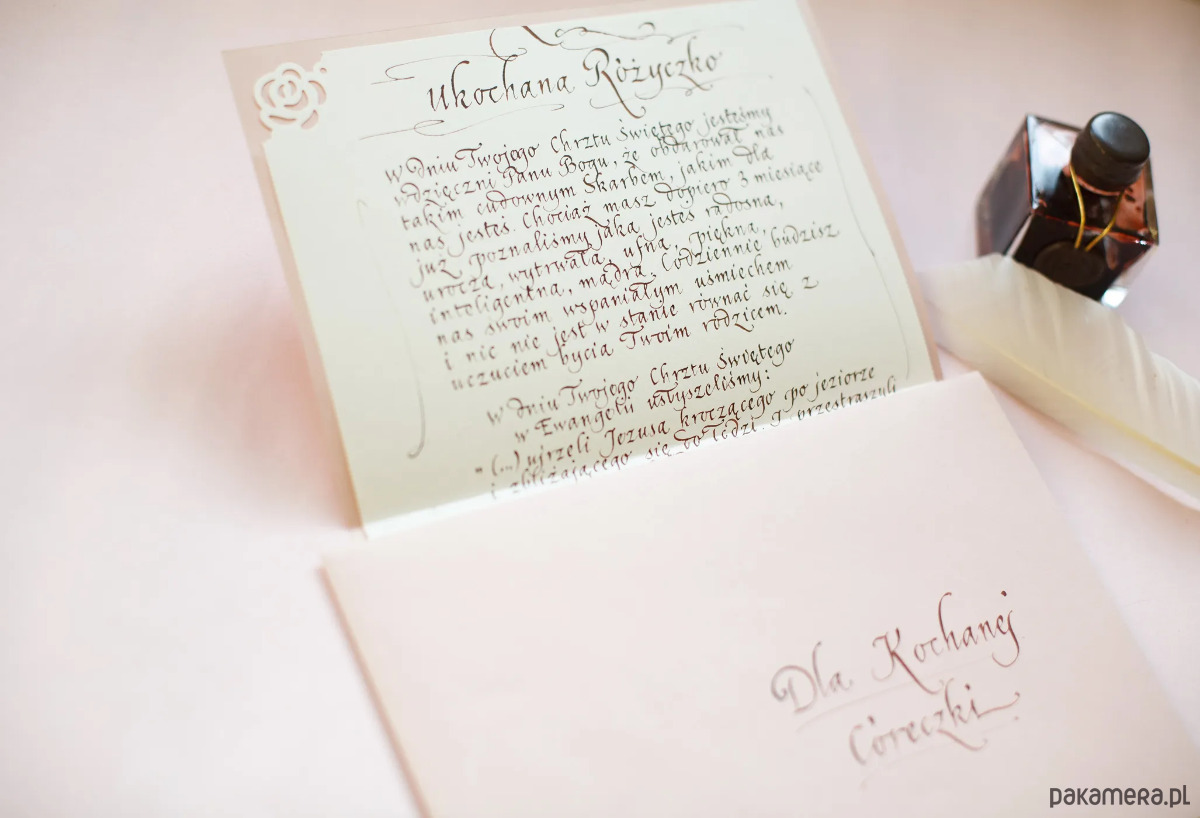 ukochana Różyczko
w dniu Twojego Chrztu Świętego jesteśmy
wdzięczni Panu Bogu, że obdarował nas
takim cudownym Skarbem, jakim dla
nas jesteś. Chociaż masz dopiero 3 miesiące
już poznaliśmy jaka jesteś radosna,
urocza, wytrwała, ufna, piękna,
inteligentna, mądra. Codziennie budzisz
nas swoim wspaniałym uśmiechem
i nic nie jest w stanie równać się z
uczuciem bycia Twoim rodzicem.
w dniu Twojego Chrztu Świętego
w Ewangelii usłyszeliśmy:
"(...) ujrzeli Jezusa kroczącego po jeziorze
i zbliżającego się do łodzi. I przestraszyli
Dla Kochanej
Córeczki
pakamera.pl